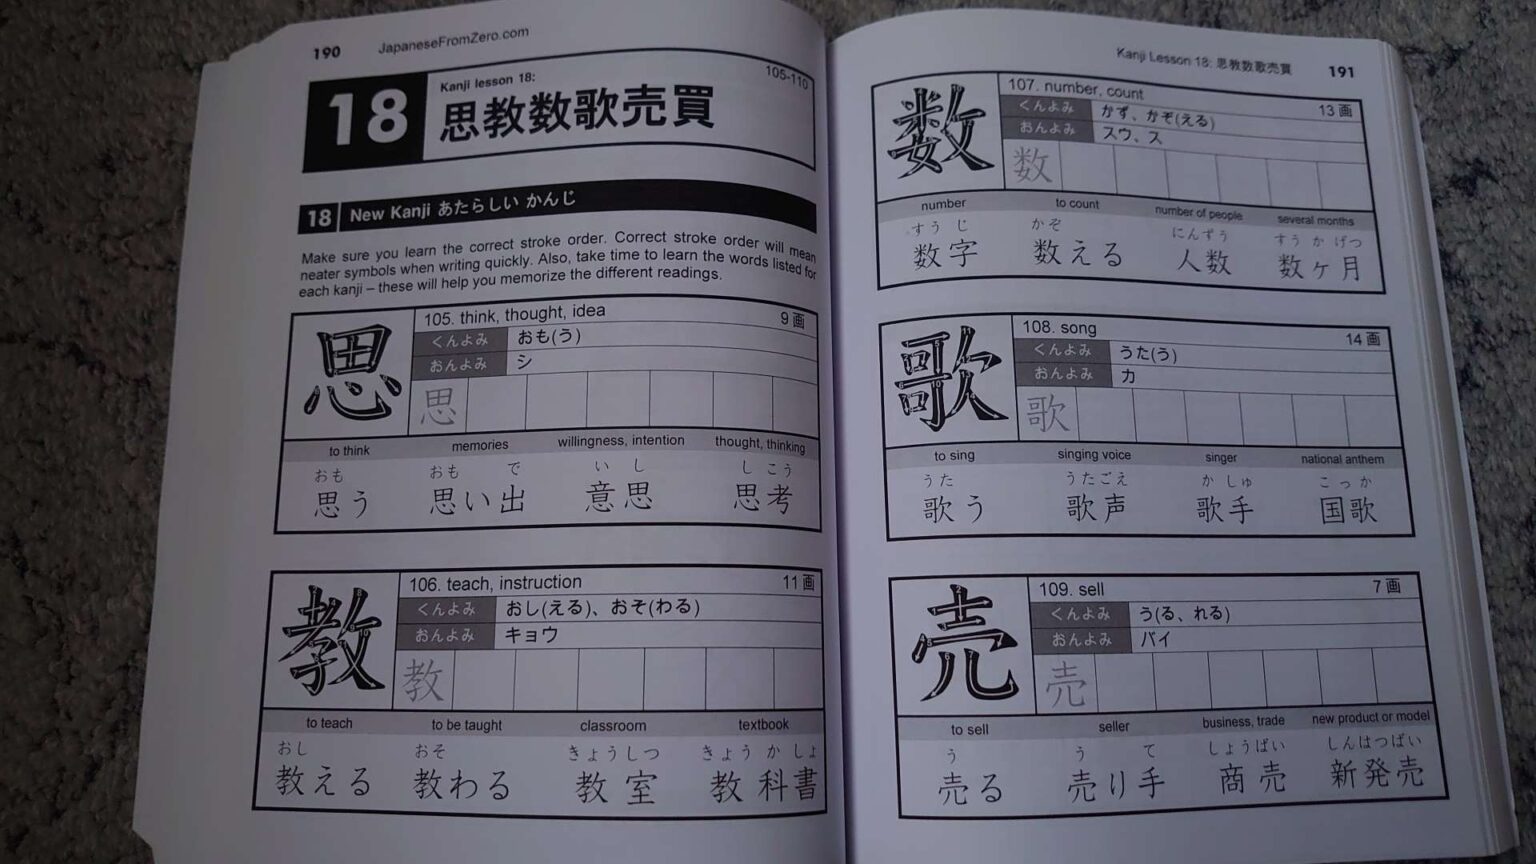 190 JapaneseFromZero.com
18
Kanji lesson 18:
105-110
思教数歌売買
18 New Kanji あたらしい かんじ
Make sure you learn the correct stroke order. Correct stroke order will mean
neater symbols when writing quickly. Also, take time to learn the words listed for
each kanji – these will help you memorize the different readings.
思
105. think, thought, idea 9 画
くんよみ おも(う)
おんよみ シ
思
to think memories willingness, intention thought, thinking
おも おも で い し し こう
思う 思い出 意思 思考
教
106. teach, instruction 11 画
くんよみ おし(える)、おそ(わる)
おんよみ キョウ
教
to teach to be taught classroom textbook
おし おそ きょうしつ きょう か しょ
教える 教わる 教室 教科書
Kanji Lesson 18: 思教数歌売買 191
数
107. number, count 13 画
くんよみ かず、かぞ(える)
おんよみ スウ、ス
数
number to count number of people several months
すう じ かぞ にんずう すう か げつ
数字 数える 人数 数ヶ月
歌
108. song 14 画
くんよみ うた(う)
おんよみ カ
歌
to sing singing voice singer national anthem
うた うたごえ か しゅ こっ か
歌う 歌声 歌手 国歌
売
109. sell 7 画
くんよみ う(る、れる)
おんよみ バイ
売
to sell seller business, trade new product or model
う う て しょうばい しんはつばい
売る 売り手 商売 新発売